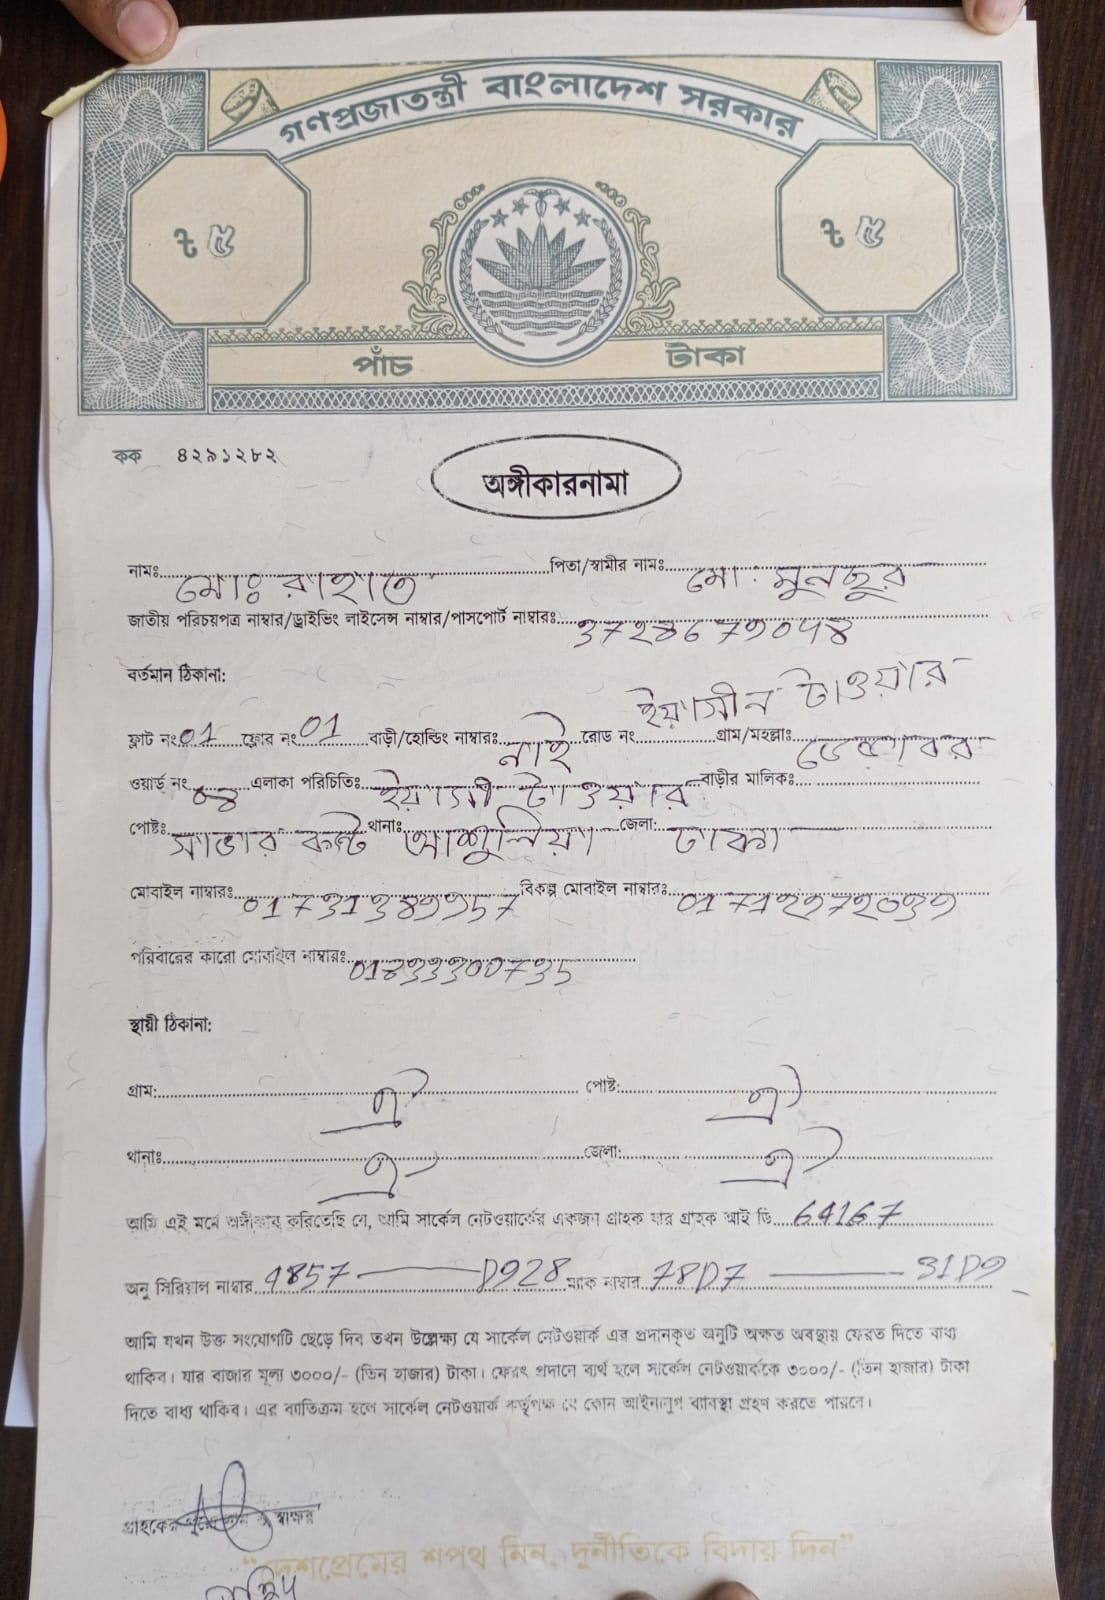 গণপ্রজাতন্ত্রী বাংলাদেশ সরকার
৳ ৫ ৳ ৫
পাঁচ টাকা
কক ৪২৯১২৮২
অঙ্গীকারনামা
নামঃ মোঃ রাহাত পিতা/স্বামীর নামঃ মো: মুনছুর
জাতীয় পরিচয়পত্র নাম্বার/ড্রাইভিং লাইসেন্স নাম্বার/পাসপোর্ট নাম্বারঃ
বর্তমান ঠিকানা:
ইয়াসীন টাওয়ার
ফ্লাট নং 01 ফ্লোর নং 01 বাড়ী/হোল্ডিং নাম্বারঃ নাই রোড নং গ্রাম/মহল্লাঃ
ওয়ার্ড নং 04 এলাকা পরিচিতিঃ ইয়াসী টাওয়ার বাড়ীর মালিকঃ
পোষ্টঃ সাভার কন্ট থানাঃ আশুলিয়া জেলা: ঢাকা
মোবাইল নাম্বারঃ বিকল্প মোবাইল নাম্বারঃ
পরিবারের কারো মোবাইল নাম্বারঃ
স্থায়ী ঠিকানা:
গ্রাম: ঐ পোষ্ট: ঐ
থানাঃ ঐ জেলা: ঐ
আমি এই মর্মে অঙ্গীকার করিতেছি যে, আমি সার্কেল নেটওয়ার্কের একজন গ্রাহক যার গ্রাহক আই ডি 64167
অনু সিরিয়াল নাম্বার 4857 — D928 ম্যাক নাম্বার 78D7 — 31D9
আমি যখন উক্ত সংযোগটি ছেড়ে দিব তখন উল্লেক্ষ্য যে সার্কেল নেটওয়ার্ক এর প্রদানকৃত অনুটি অক্ষত অবস্থায় ফেরত দিতে বাধ্য
থাকিব। যার বাজার মূল্য ৩০০০/- (তিন হাজার) টাকা। ফেরৎ প্রদানে ব্যর্থ হলে সার্কেল নেটওয়ার্ককে ৩০০০/- (তিন হাজার) টাকা
দিতে বাধ্য থাকিব। এর ব্যতিক্রম হলে সার্কেল নেটওয়ার্ক কর্তৃপক্ষ যে কোন আইনানুগ ব্যাবস্থা গ্রহণ করতে পারবে।
গ্রাহকের স্বাক্ষর
“দেশপ্রেমের শপথ নিন, দুর্নীতিকে বিদায় দিন”